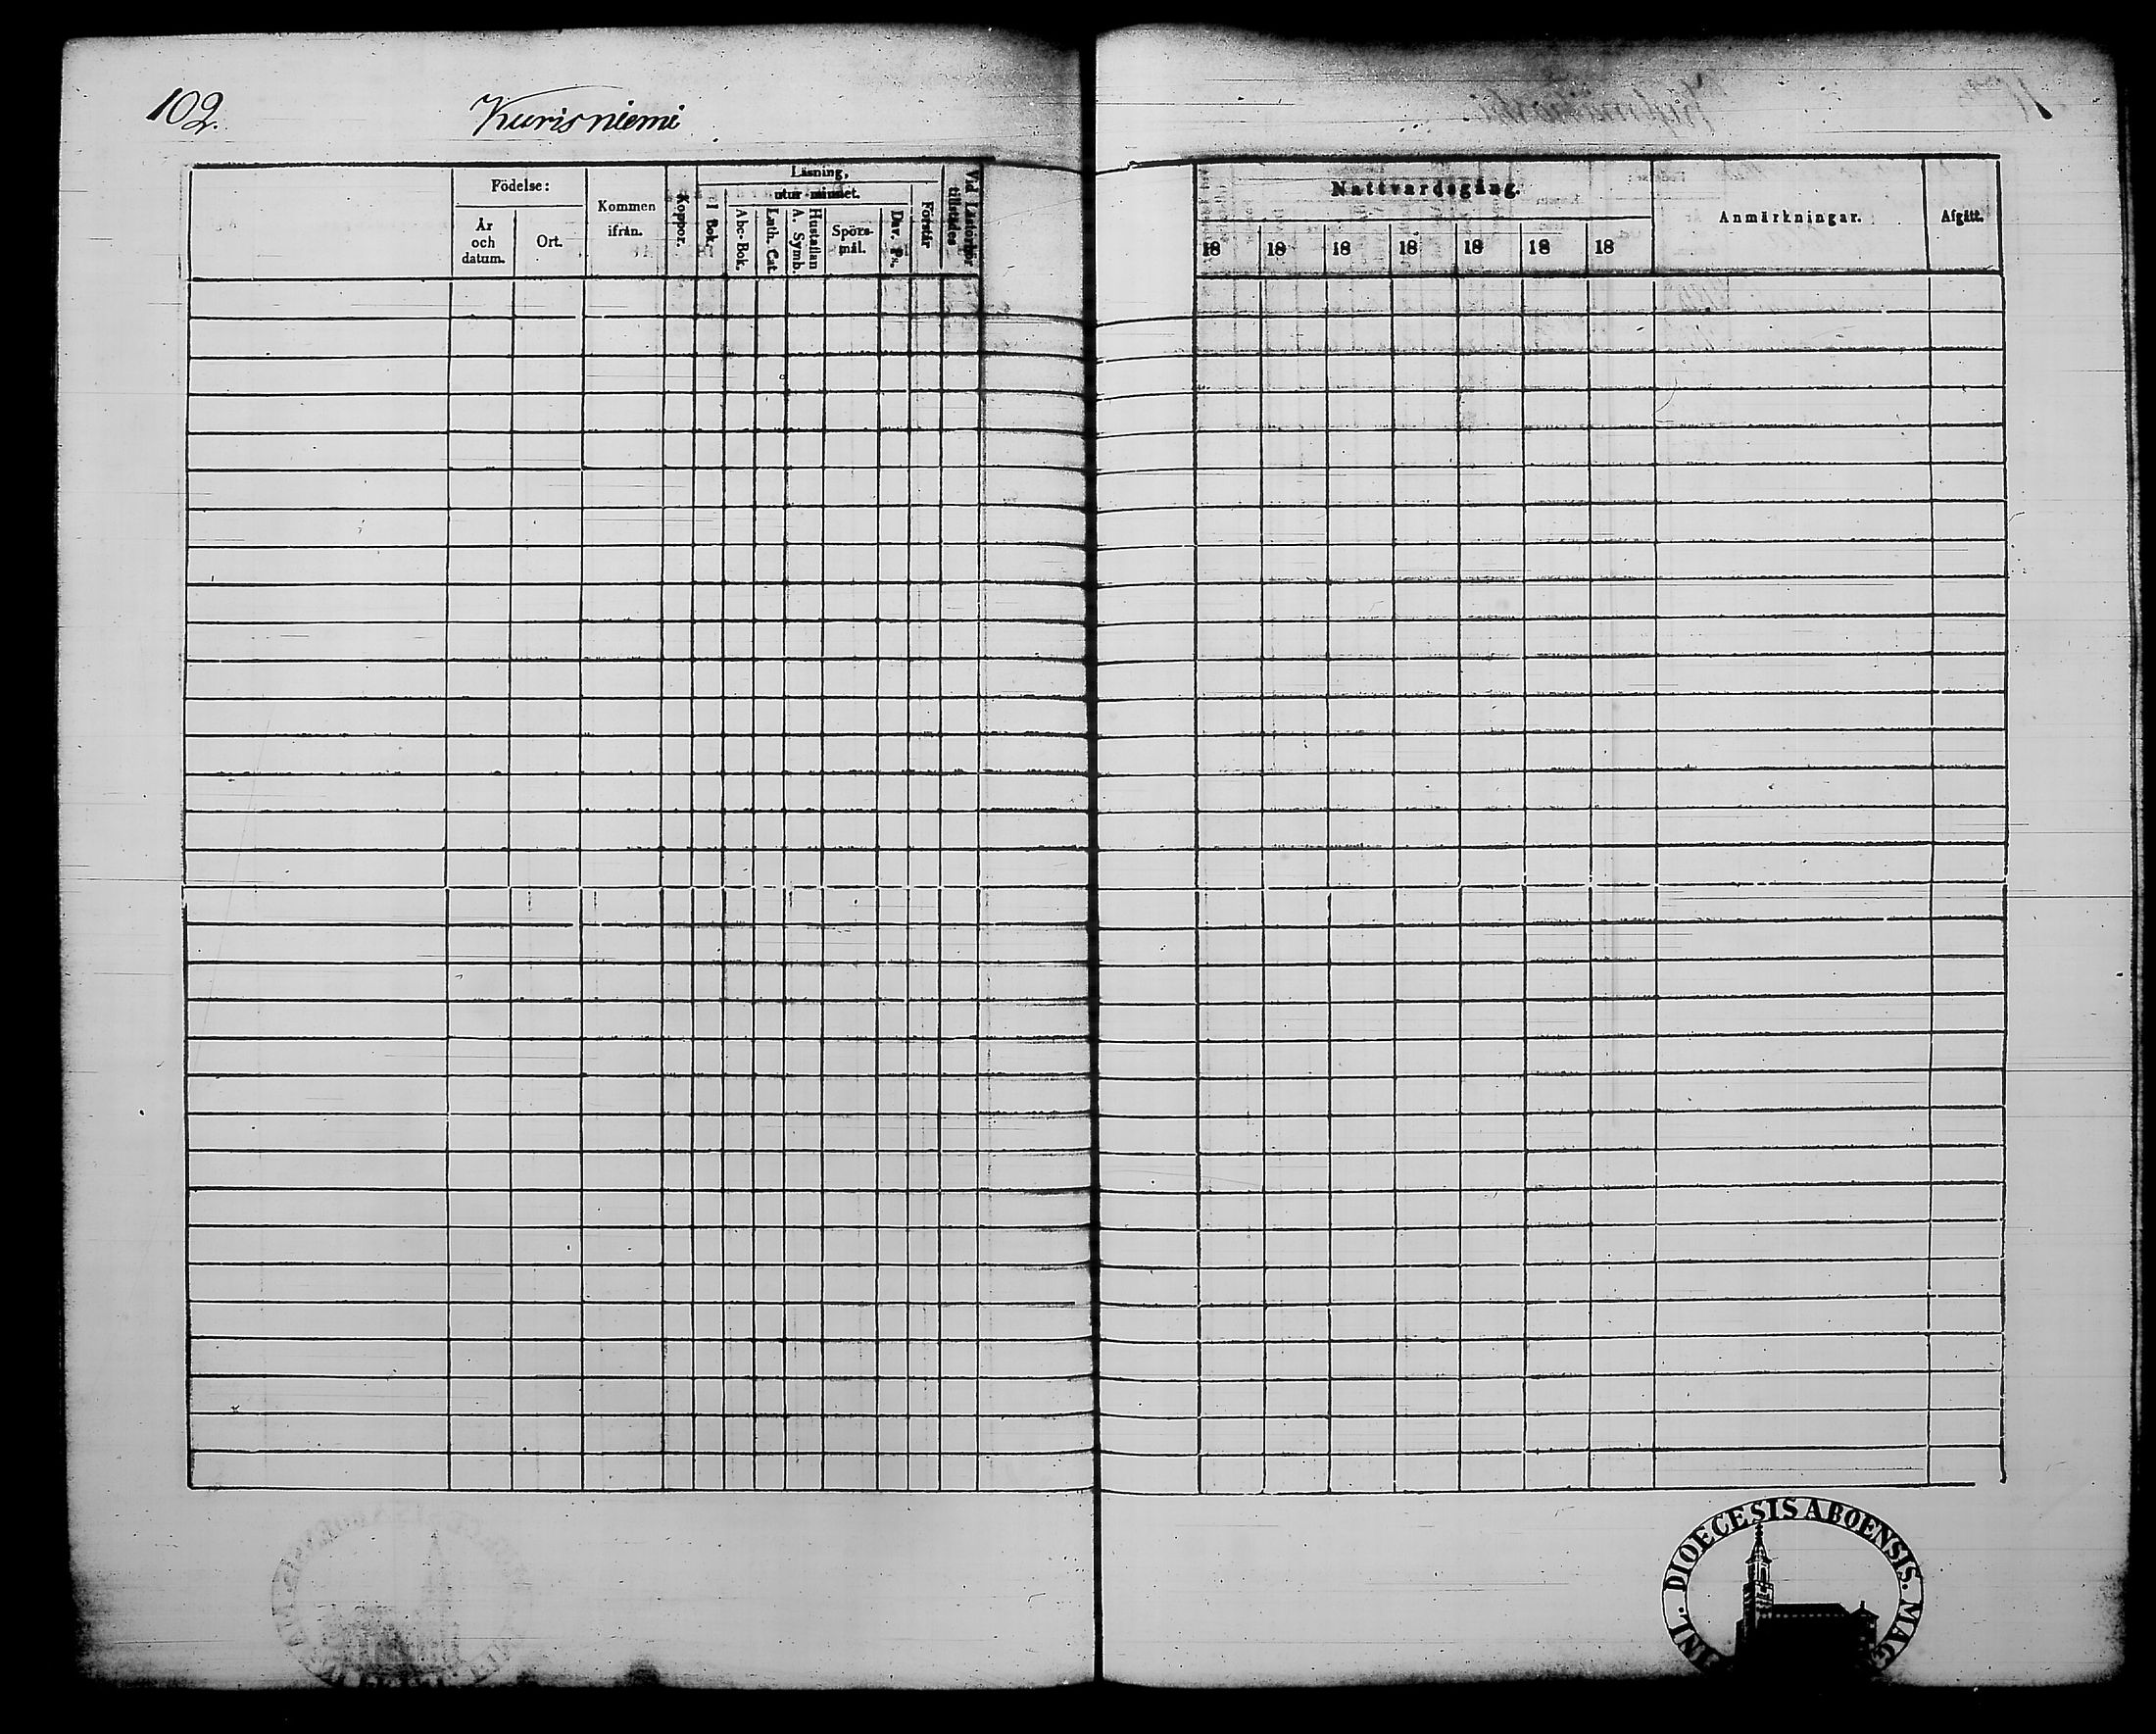 102.
Kurisniemi
Födelse:
År och datum.
Ort.
Kommen ifrån.
Koppor.
Läsning,
I Bok.
utur minnet.
Abc-Bok.
Luth. Cat.
Hustaflan A. Symb.
Spörsmål.
Dav. Ps.
Förstår
Vid Läsförhör tillstädes
Nattvardsgång.
18 18 18 18 18 18 18
Anmärkningar.
Afgått.
DIOECESIS ABOENSIS.